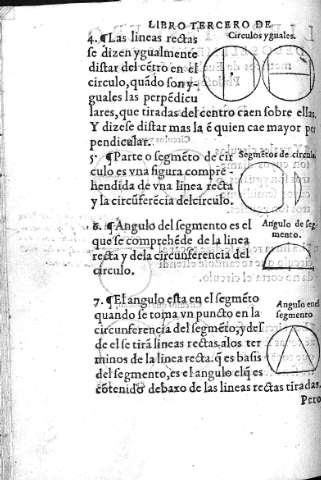 LIBRO TERCERO DE
4. ¶Las lineas rectas
se dizen ygualmente
distar del cẽtro en el
circulo, quãdo son y-
guales las perpẽdicu
lares, que tiradas del centro caen sobre ellas.
Y dizese distar mas la ẽ quien cae mayor per
pendicular.
Circulos yguales.
5. ¶Parte o segmẽto de cir
culo es vna figura compre-
hendida de vna linea recta
y la circũferẽcia del circulo.
Segmẽtos de circulo.
6. ¶Angulo del segmento es el
que se comprehẽde de la linea
recta y dela circunferencia del
circulo.
Angulo de seg-
mento.
7. ¶El angulo esta en el segmẽto
quando se toma vn puncto en la
circunferencia del segmẽto, y des
de el se tirã lineas rectas, a los ter
minos de la linea recta. q̃ es basis
del segmento, es el angulo el q̃ es
cõtenido debaxo de las lineas rectas tiradas,
Angulo en el
segmento
Pero